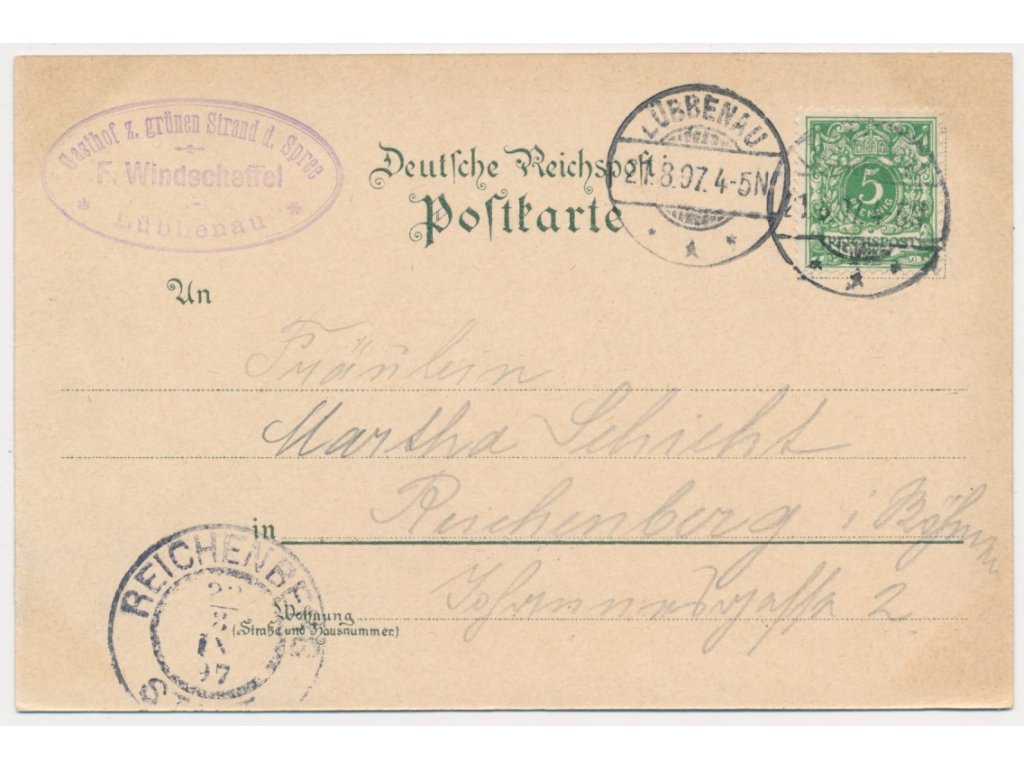 Gasthof z. grünen Strand d. Spree
F. Windscheffel
Lübbenau
Deutsche Reichspost
Postkarte
LÜBBENAU
21.8.97. 4-5N
5
PFENNIG
REICHSPOST
An
Fräulein
Martha Schicht
in Reichenberg i Böhmen
Wohnung
(Straße und Hausnummer)
Johannesgasse 2
REICHENBERG
22
8
97